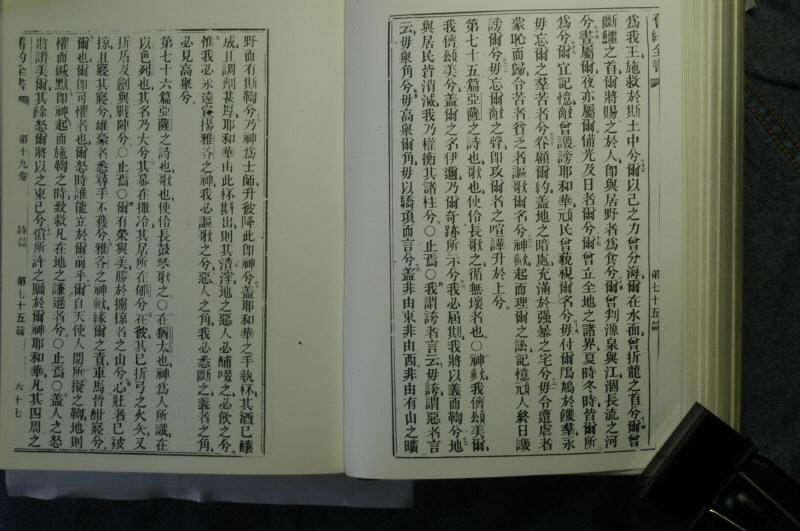 舊約全書
第七十五篇
爲我王施救於斯土中兮爾以己之力曾分海爾在水面曾折龍之首兮爾曾
斷鱷之首爾將賜之於人卽與居野者爲食兮爾曾判源泉與江涸長流之河
兮晝屬爾夜亦屬爾備光及日者爾兮爾曾立全地之諸界夏時冬時皆爾所
爲兮爾宜記憶敵曾譭謗耶和華頑民曾藐視爾名兮毋付爾鳲鳩於饑羣永
毋忘爾之羣苦者兮眷顧爾約蓋地之暗處充滿於强暴之宅兮毋令遭虐者
蒙恥而歸令苦者貧乏者謳歌爾名兮神歟起而理爾之訟記憶頑人終日譭
謗爾兮毋忘爾敵之聲卽攻爾者之喧譁升於上兮
第七十五篇亞薩之詩也歌也使伶長歌之循無壞者也○神歟我儕頌美爾
我儕頌美兮蓋爾之名伊邇乃爾奇跡所示兮我必屆期我將以義而鞫兮地
與居民皆消滅我乃權衡其諸柱兮○止焉○我謂誇者言云毋誇謂惡者言
云毋舉角兮毋高舉爾角毋以驕項而言兮蓋非由東非由西非由有山之曠
野而有斯鞫兮乃神爲士師升彼降此卽神兮蓋耶和華之手執杯其酒已釀
成且調劑甚厚耶和華由此杯斟出則其渣滓地之惡人必酺啜之必飲之兮
惟我必永遠宣揚雅各之神我必謳歌之兮惡人之角我必悉斷之義者之角
必見高舉兮
第七十六篇亞薩之詩也歌也使伶長鼓琴歌之○在猶太也神爲人所識在
以色列也其名乃大兮其幕在撒冷其居所在郇兮在彼其已折弓之火矢又
折盾及劍與戰陣兮○止焉○爾有榮與美勝於擄掠者之山兮心壯者已被
掠且寢其寢兮雄豪者悉尋手不獲兮雅各之神歟緣爾之責車馬皆酣寢兮
爾也爾卽可懼者也爾怒時誰能立於爾前乎爾自天使人聞所擬之鞫地則
懼而緘默卽神起而施鞫之時致救凡在地之謙遜者兮○止焉○蓋人之怒
將讚美爾其餘怒爾將以之束己兮償所許之願於爾神耶和華凡其四周之
舊約全書
第十九卷
詩篇
第七十五篇
六十七